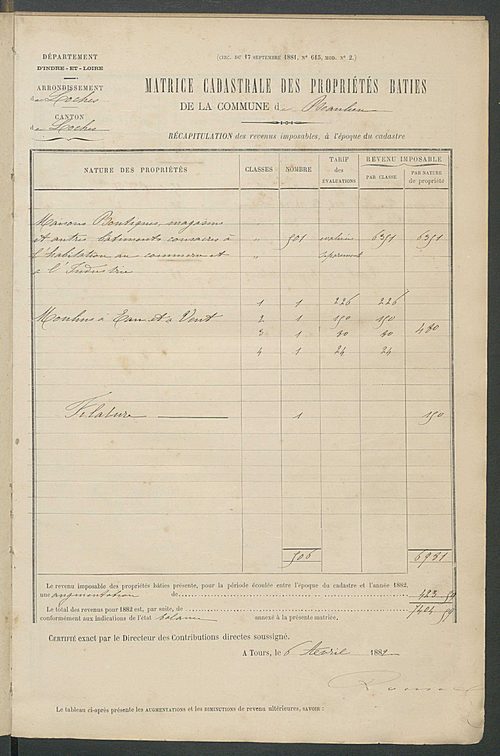 DÉPARTEMENT
D'INDRE-ET-LOIRE
ARRONDISSEMENT
de Loches
CANTON
de Loches
(CIRC. DU 17 SEPTEMBRE 1881, N° 615, MOD. N° 2.)
MATRICE CADASTRALE DES PROPRIÉTÉS BATIES
DE LA COMMUNE de Beaulieu
RÉCAPITULATION des revenus imposables, à l'époque du cadastre
NATURE DES PROPRIÉTÉS CLASSES NOMBRE TARIF des ÉVALUATIONS REVENU IMPOSABLE PAR CLASSE PAR NATURE de propriété
Maisons Boutiques, magasins
et autres bâtiments consacrés à " 501 évaluées 6351 6351
l'habitation au commerce et " séparément
à l'Industrie
1 1 226 226
Moulins à Eau et à Vent 2 1 150 150 480
3 1 80 80
4 1 24 24
Filature 1 150
506 6981
Le revenu imposable des propriétés bâties présente, pour la période écoulée entre l'époque du cadastre et l'année 1882,
une augmentation de 423 59
Le total des revenus pour 1882 est, par suite, de 7404 59
conformément aux indications de l'état balance annexé à la présente matrice.
CERTIFIÉ exact par le Directeur des Contributions directes soussigné.
A Tours, le 6 Avril 1882
Le tableau ci-après présente les AUGMENTATIONS et les DIMINUTIONS de revenu ultérieures, SAVOIR :